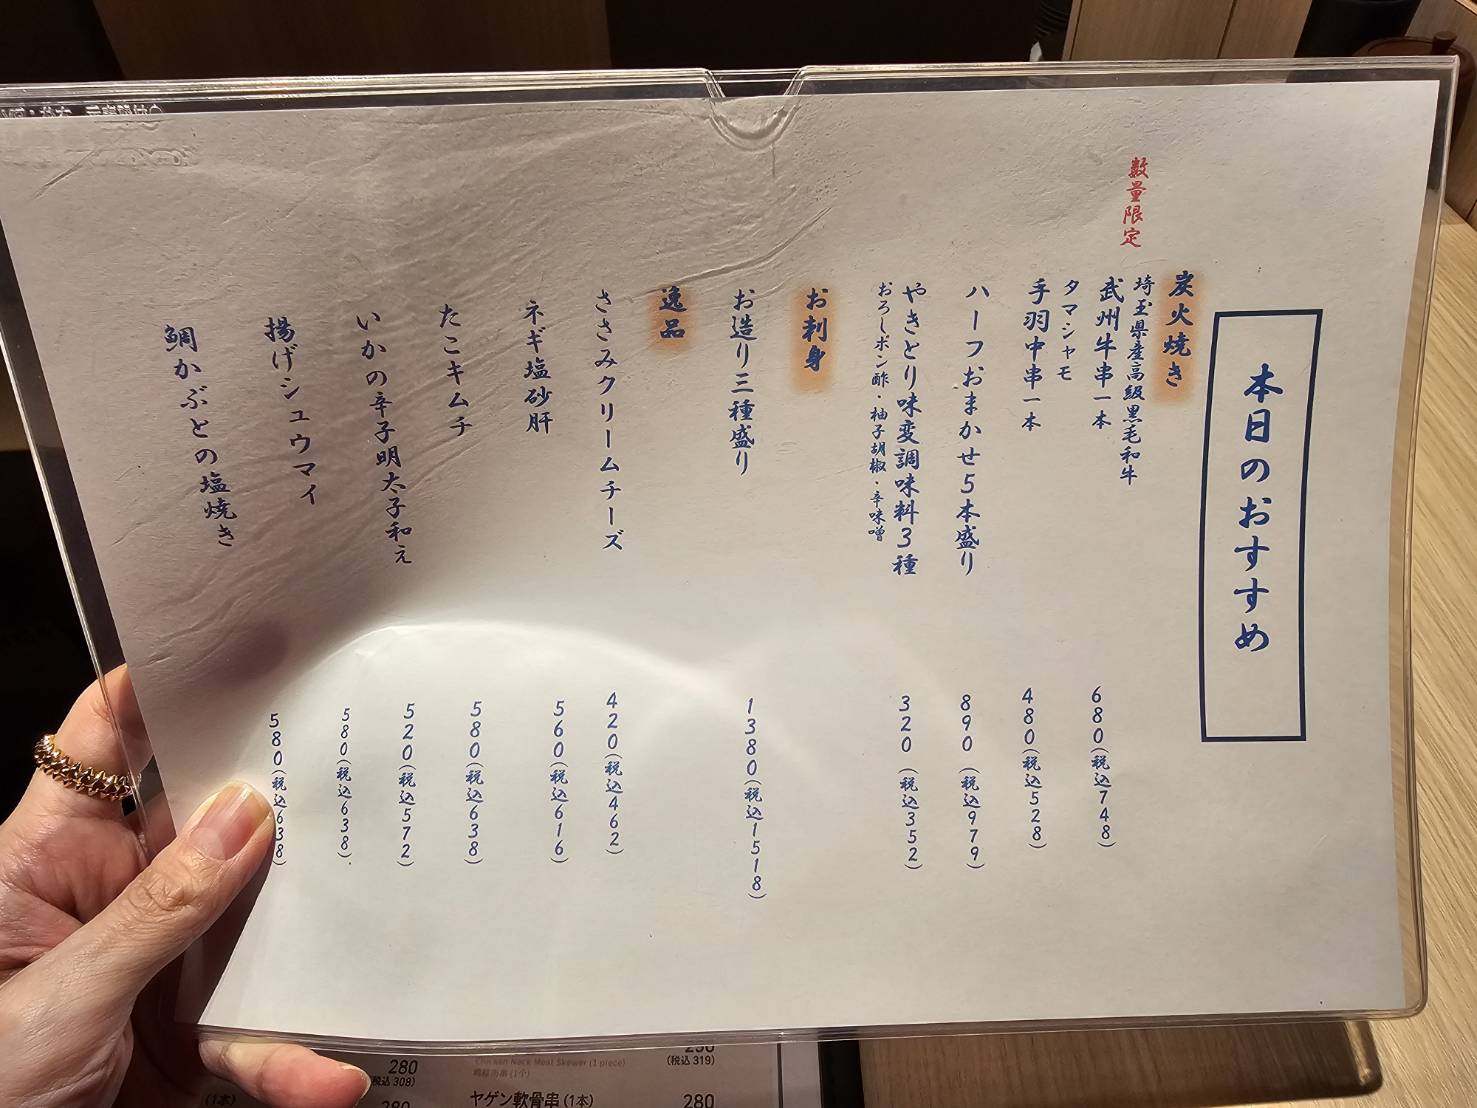 本日のおすすめ
炭火焼き
数量限定
埼玉県産高級黒毛和牛
武州牛串一本
680(税込748)
タマシャモ
手羽中串一本
480(税込528)
ハーフおまかせ5本盛り
890(税込979)
やきとり味変調味料3種
320(税込352)
おろしポン酢・柚子胡椒・辛味噌
お刺身
お造り三種盛り
1380(税込1518)
逸品
ささみクリームチーズ
420(税込462)
ネギ塩砂肝
560(税込616)
たこキムチ
580(税込638)
いかの辛子明太子和え
520(税込572)
揚げシュウマイ
580(税込638)
鯛かぶとの塩焼き
580(税込638)
280
(税込308)
280
(1本)
Chicken Neck Meat Skewer (1 piece)
(税込319)
ヤゲン軟骨串(1本)
280